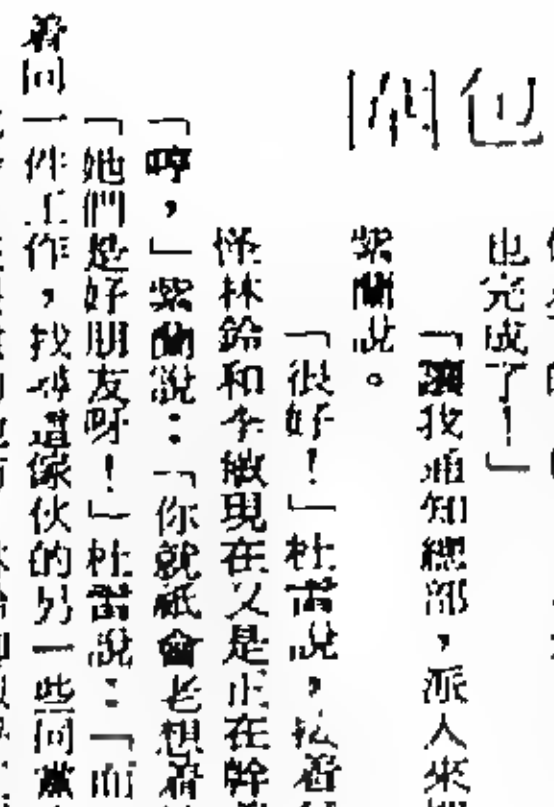 也完成了！」
「讓我通知總部，派人來
紫蘭說。
「很好！」杜雷說，着
怪林鈴和李傲現在又是正在幹
「哼，」紫蘭說：「你就祇會老想着
「她們是好朋友呀！」杜雷說：「而
着同一件工作，找尋這傢伙的另一些同黨